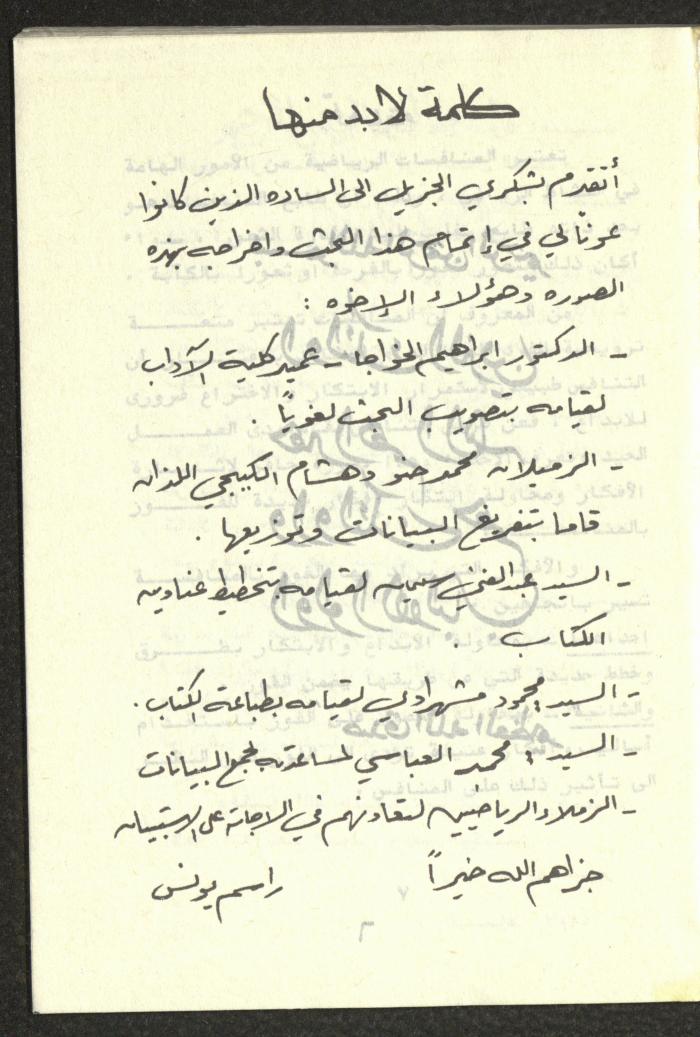 كلمة لا بد منها
أتقدم بشكري الجزيل الى الساده الذين كانوا
عونا لي في إتمام هذا البحث واخراجه بهذه
الصوره وهؤلاء الإخوه :
- الدكتور ابراهيم الخواجا - عميد كلية الآداب
لقيامه بتصويب البحث لغوياً .
- الزميلان محمد حنو وهشام الكيبجي اللذان
قاما بتفريغ البيانات وتوزيعها .
- السيد عبد الغني لقيامه بتخطيط عناوين
الكتاب .
- السيد محمود مشهراوي لقيامه بطباعة الكتاب .
- السيد : محمد العباسي لمساعدته بجمع البيانات
- الزملاء الرياضيين لتعاونهم في الاجابة على الاستبيان
جزاهم الله خيراً
راسم يونس
٦